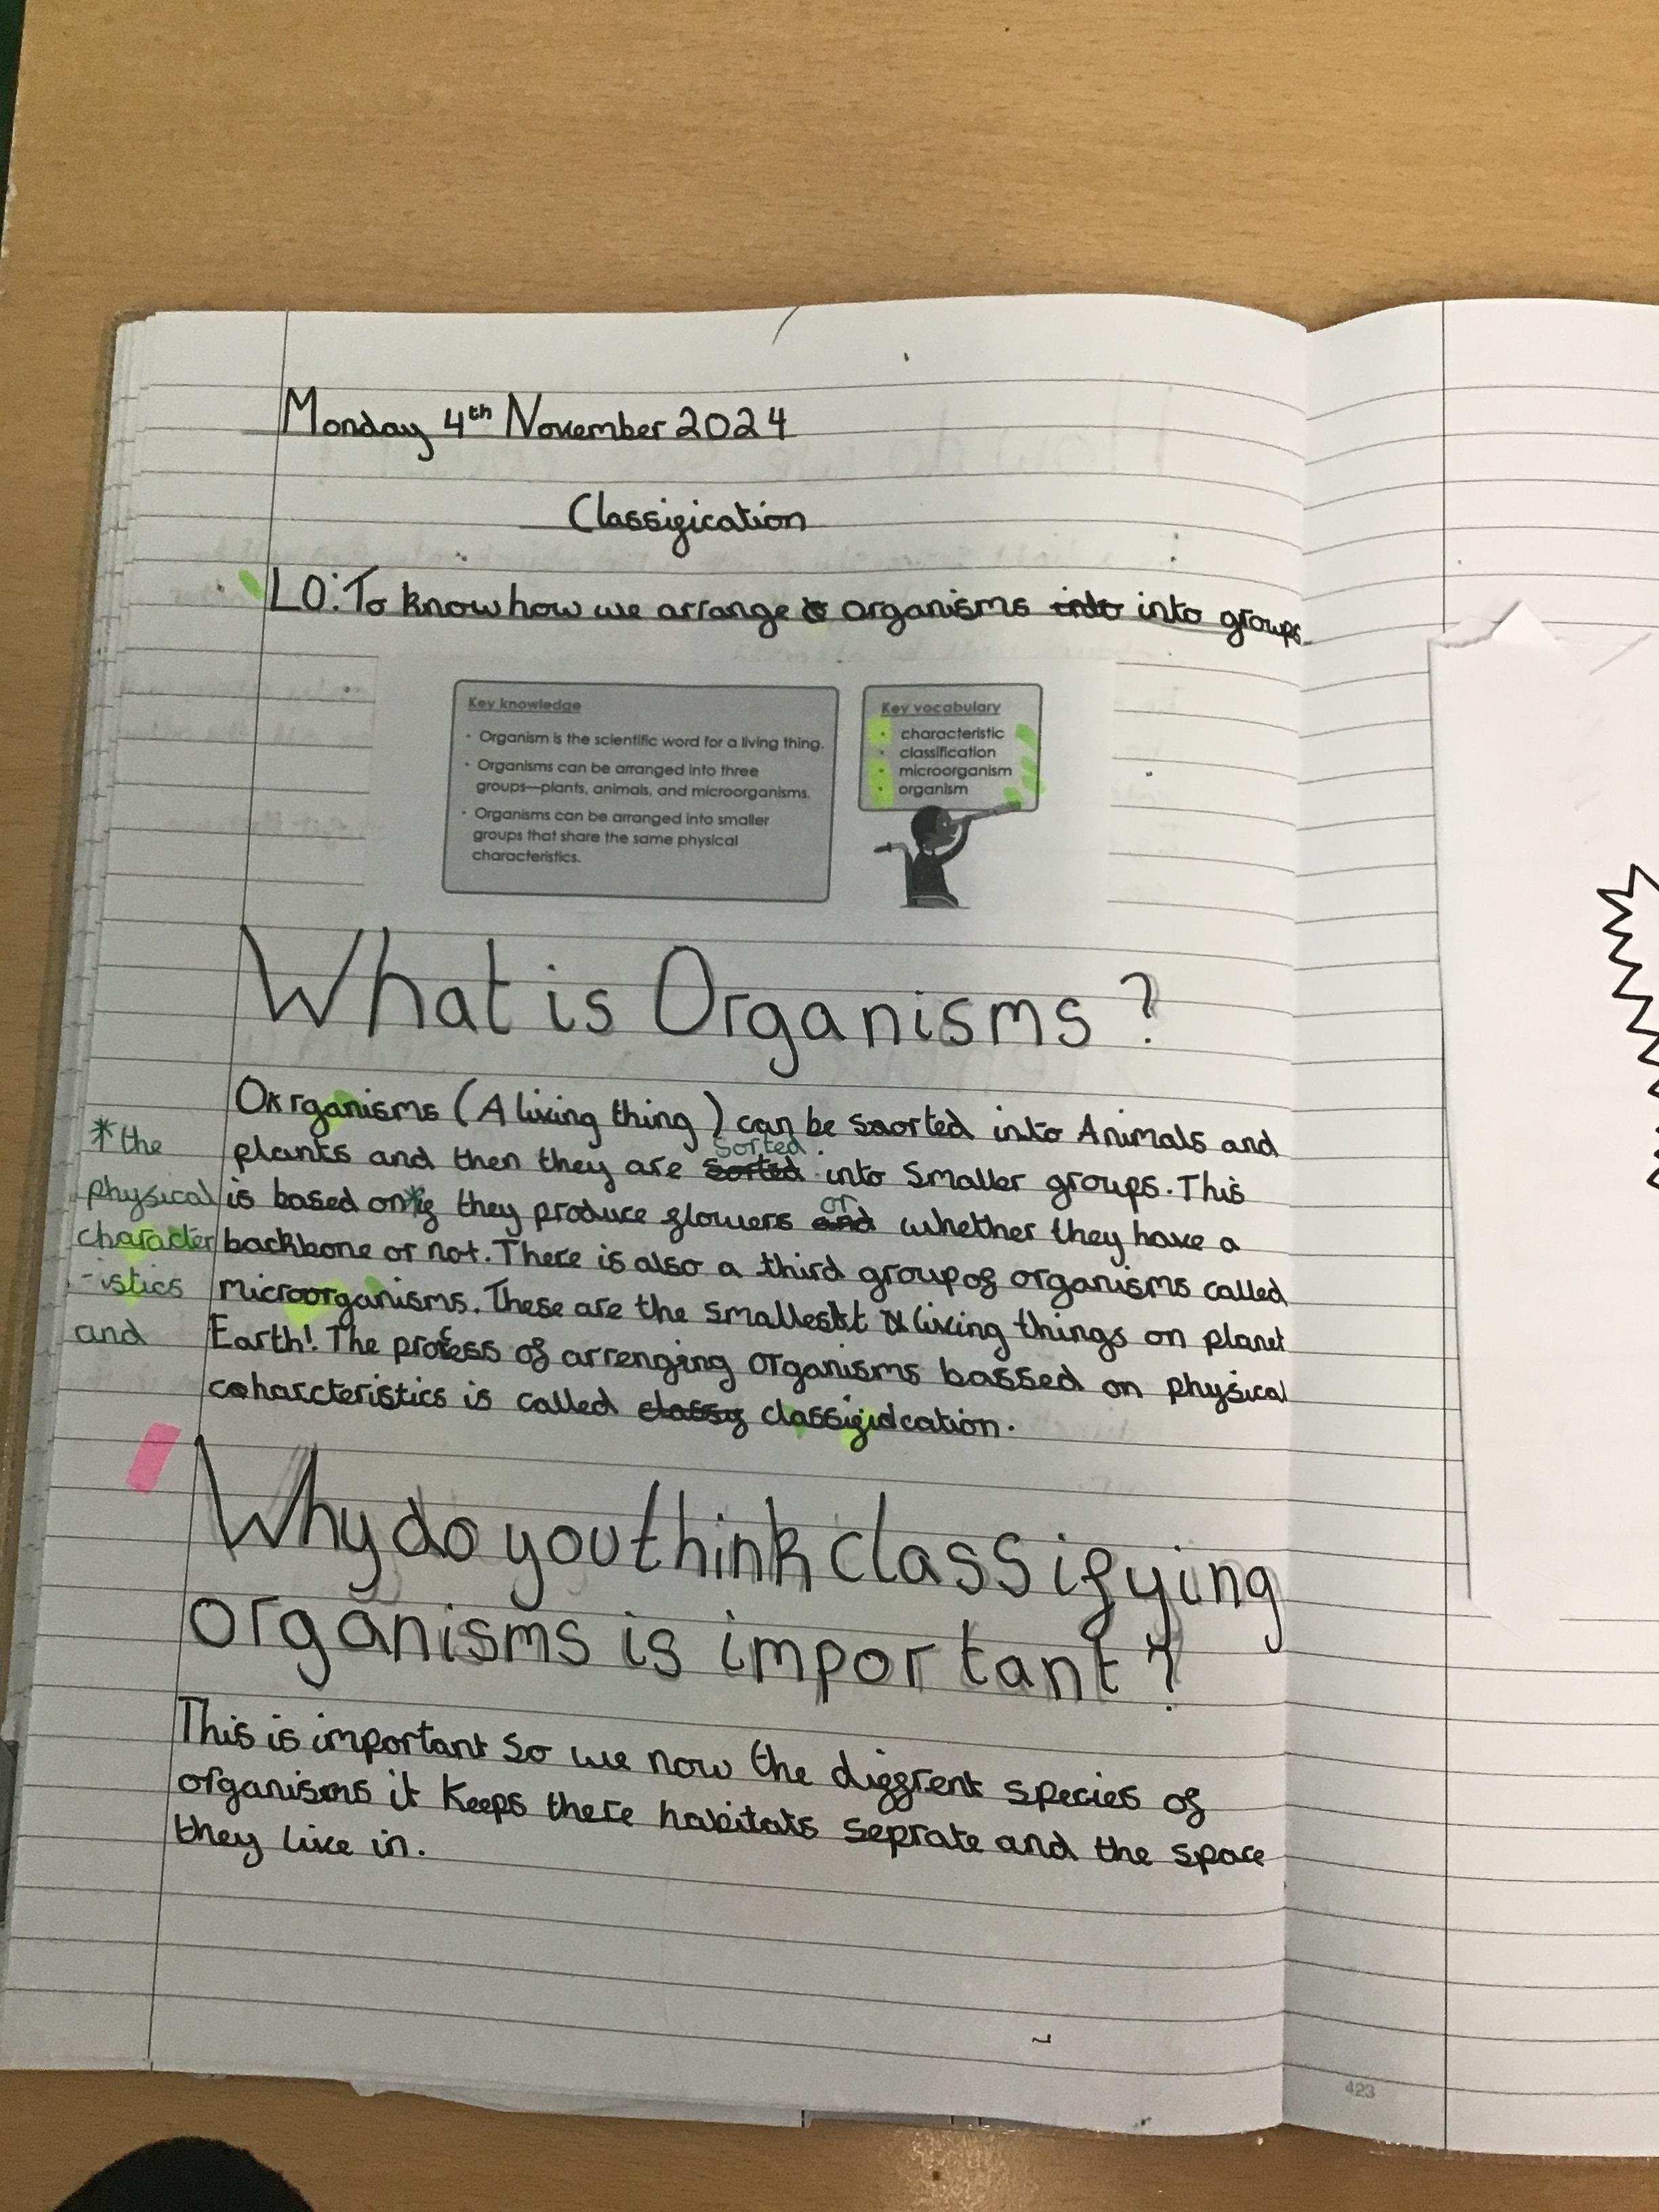 Monday 4th November 2024
Classification
LO: To know how we arrange organisms into into groups.
Key knowledge
• Organism is the scientific word for a living thing.
• Organisms can be arranged into three
groups—plants, animals, and microorganisms.
• Organisms can be arranged into smaller
groups that share the same physical
characteristics.
Key vocabulary
• characteristic
• classification
• microorganism
• organism
What is Organisms?
Organisms (A living thing) can be sorted into Animals and
plants and then they are sorted sorted into smaller groups. This
is based on* if they produce flowers and or whether they have a
backbone or not. There is also a third group of organisms called
microorganisms. These are the smallest living things on planet
Earth! The process of arrenging organisms bassed on physical
coharcteristics is called classif classifidcation.
*the
physical
character
-istics
and
Why do you think classifying
organisms is important?
This is important so we now the diffrent species of
organisms it keeps there habitats seprate and the space
they live in.
423